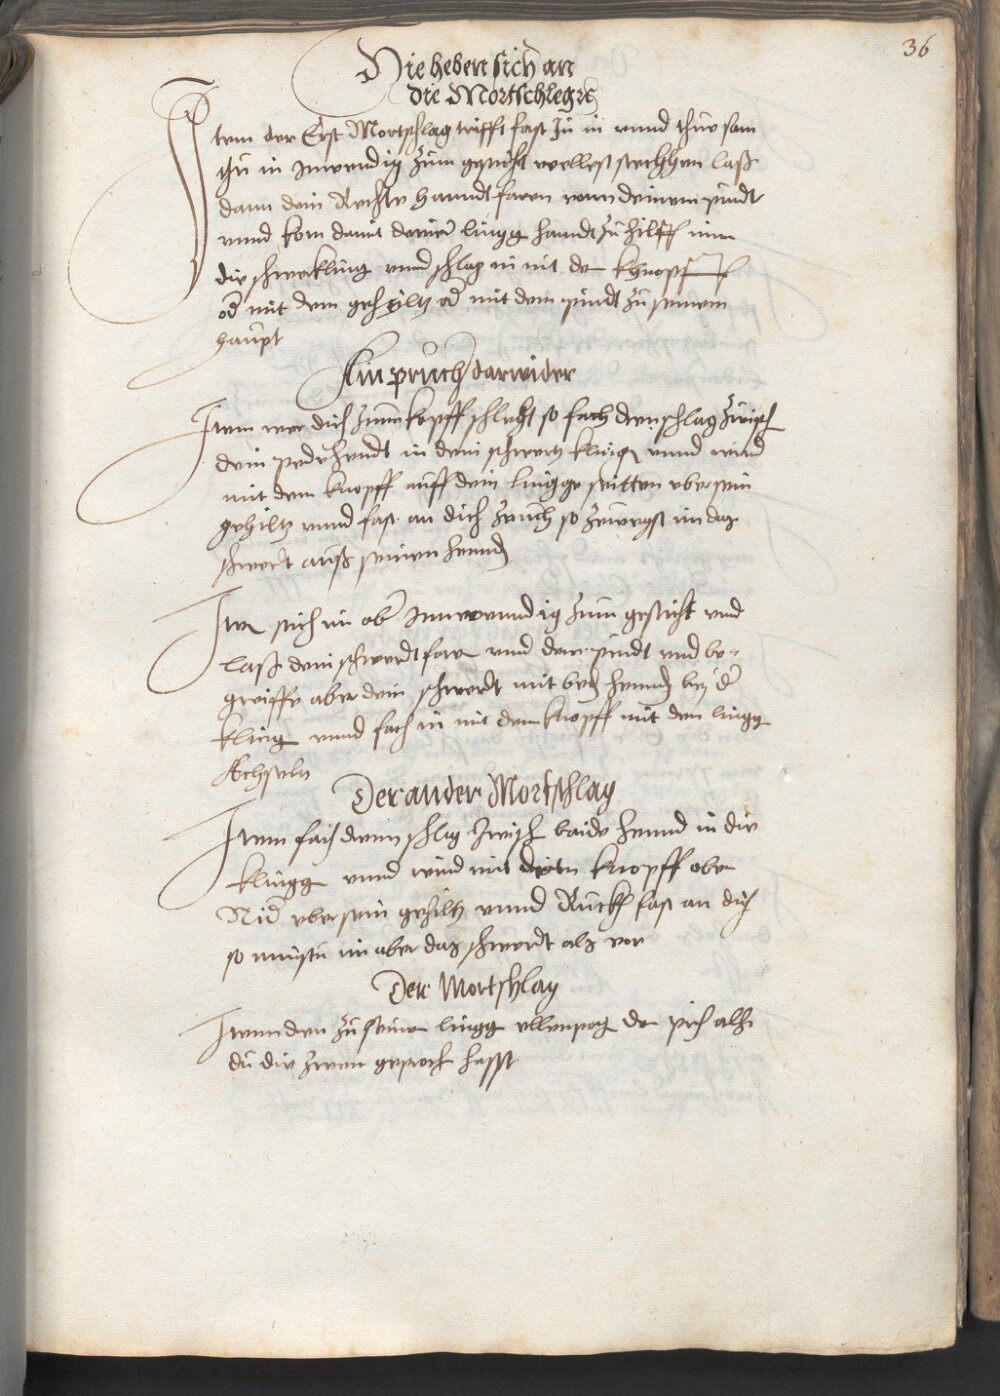 36
Die heben sich an
die Mortschlegn
Item der Erst Mortschlag trifft fast zu in vnnd thue sam
thu in Inwendig zum gesicht wellest stechhen laß
dann dein Rechte hanndt faren vonn deinem pindt
vnnd kom damit deiner lingg hanndt zu hilff inn
die schwerkling vnnd schlag in mit de khnopf
od mit dem gehiltz od mit dem pindt zu seinem
haupt
Ain pruch darwider
Item wer dich zum kopff schlecht so fach den schlag zwisch
dein pede hendt in dein schwertz klinge vnnd wind
mit dem knopff auff dein lingge seitten vber sein
gehiltz vnnd fast an dich zeuch so zeuchst im das
schwert auß seinen hennd
Item stich im ober Innwenndig zum gesicht vnd
laß dein schwerdt farn vnnd dein pindt vnd be-
greiffe aber dein schwerdt mit bed hennd bey der
kling vnnd fach in mit dem knopff mit den lingg
Achseln
Der ander Mortschlag
Item fach denn schlag zwisch baide hennd in die
klingg vnnd wind mit dem knopff oben
Nid vber sein gehiltz vnnd Ruckh fast an dich
so nimstu im aber das schwerdt als vor
Der Mortschlag
Item den zu seiner lingg ellenpog de prich alß
du die zwen geproch hasst